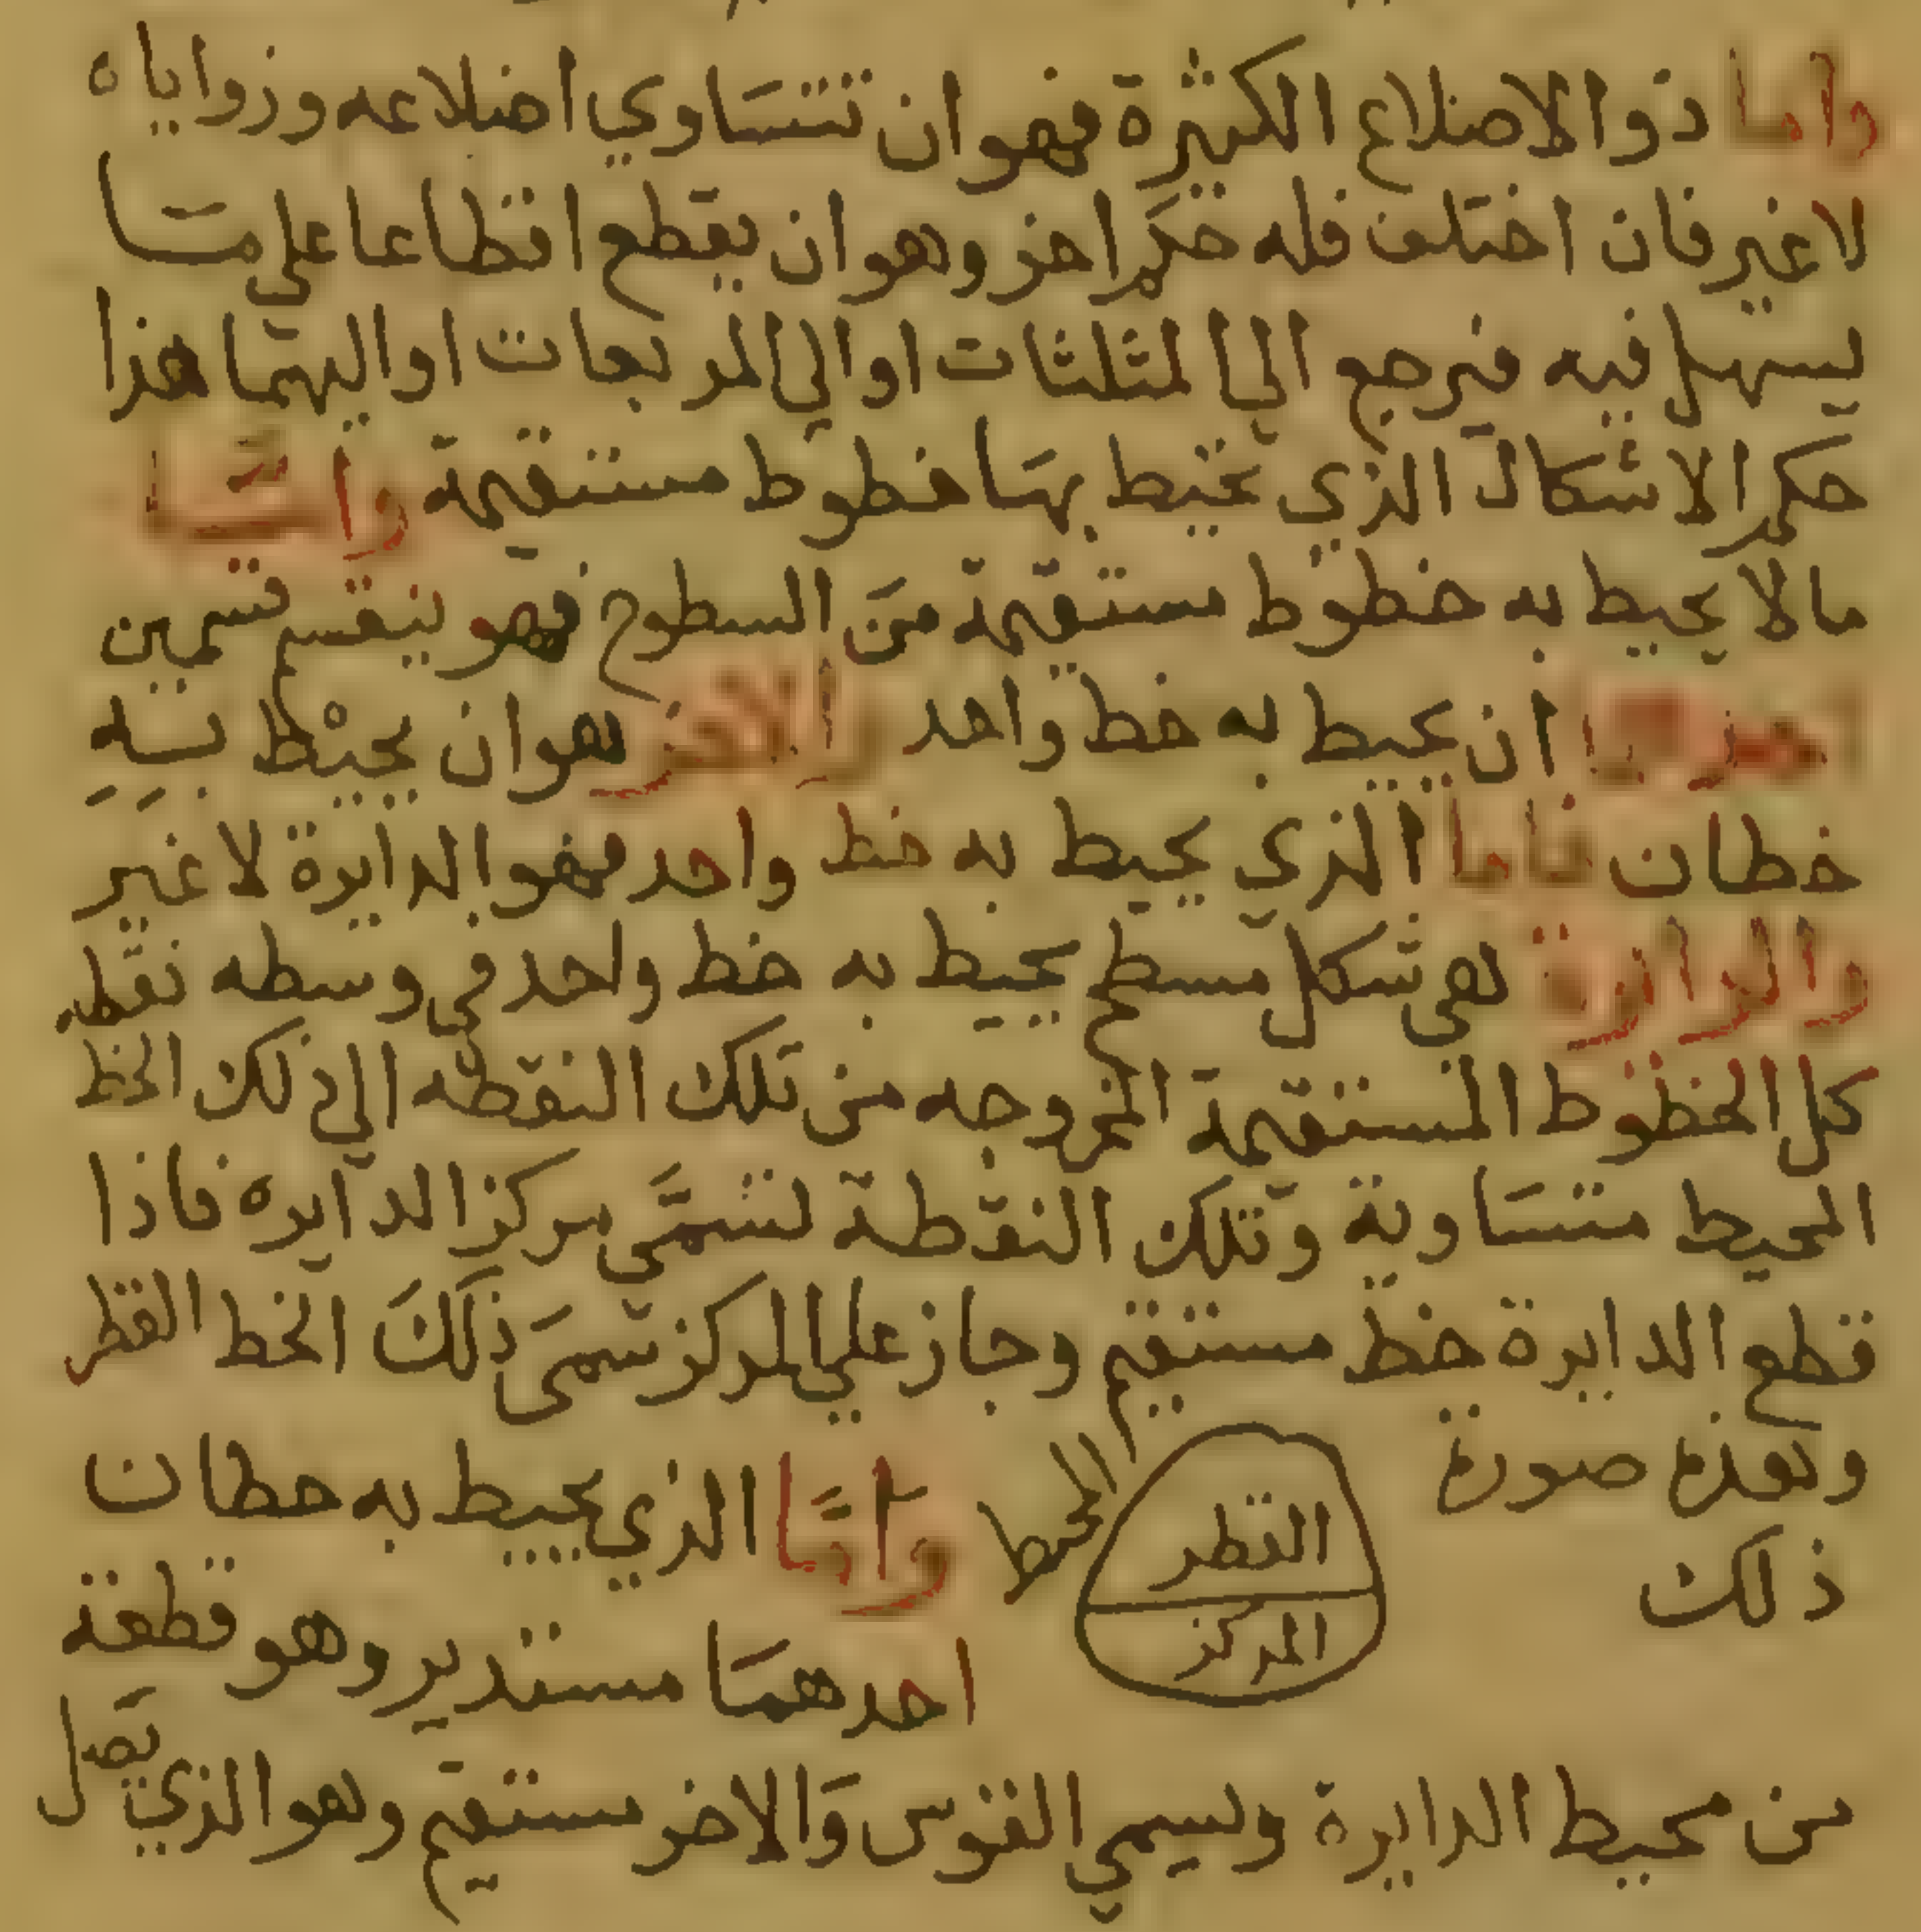 واما ذو الاضلاع الكثيرة فهو ان تتساوي اضلاعه وزواياه
لا غير فان اختلف فله حكم اخر وهو ان يقطع اقطاعا على ما
يسهل فيه فيرجع الي المثلثات او الي المربعات او اليهما هذا
حكم الاشكال الذي يحيط بها خطوط مستقيمة واما
مالا يحيط به خطوط مستقيمة من السطوح فهو ينقسم قسمين
احدهما ان يحيط به خط واحد والاخر هو ان يحيط به
خطان فاما الذي يحيط به خط واحد فهو الدايرة لا غير
والدايرة هي شكل مسطح يحيط به خط واحد في وسطه نقطه
كل الخطوط المستقيمة المخروجه من تلك النقطه الي ذلك الخط
المحيط متساوية وتلك النقطة تسمَّي مركز الدايره فاذا
قطع الدايرة خط مستقيم وجاز علي المركز سمى ذلك الخط القطر
وهذه صورة
ذلك
المحيط
القطر
المركز
وامَّا الذي يحيط به خطان
احدهما مستدير وهو قطعة
من محيط الدايرة ويسمي القوس والاخر مستقيم وهو الذي يصل